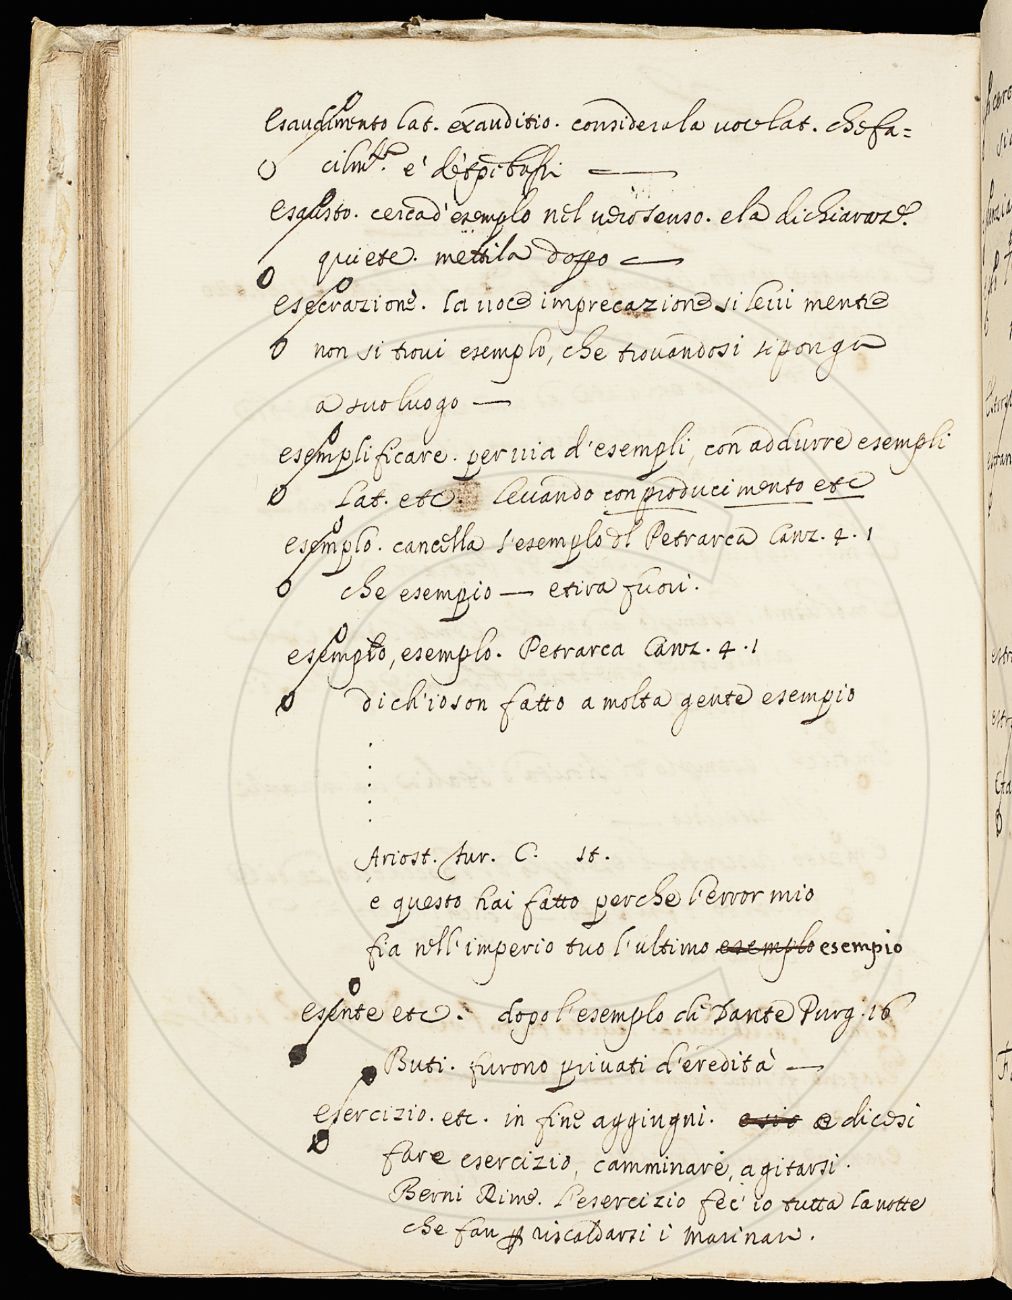 esaudimento lat. exauditio. considera la voce lat. che fa=
cilm.te e' de' tpi bassi —
esausto. cerca d'esemplo nel vero senso. e la dichiaraz.e
quiete. mettila doppo —
esecrazione. la voce imprecazione si levi mentre
non si trovi esemplo, che trovandosi si ponga
a suo luogo —
esemplificare. per via d'esempli, con addurre esempli
Lat. etc. levando con producimento etc
esemplo. cancella l'esemplo dl Petrarca Canz. 4. 1
che esempio — e tira fuori.
esempio, esemplo. Petrarca Canz. 4. 1
di ch'io son fatto a molta gente esempio
Ariost. fur. C. st.
e questo hai fatto perche l'error mio
fia nell'imperio tuo l'ultimo esemplo esempio
esente etc. dopo l'esemplo di Dante Purg. 16
Buti. furono privati d'eredità —
esercizio. etc. in fine aggiugni. e dicesi
fare esercizio, camminare, agitarsi.
Berni Rime. L'esercizio fec' io tutta la notte
che fan p riscaldarsi i marinari.